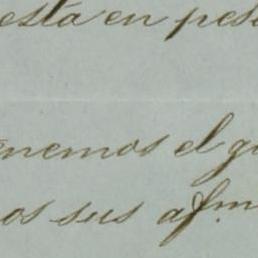 está en pese
enemos el gu
os sus afm